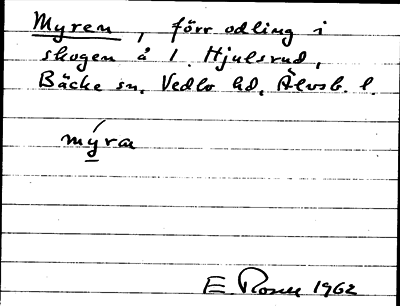 Myren, förr odling i
skogen å 1 Hjulsrud,
Bäcke sn. Vedbo hd. Älvsb. l.
mýra
E. Rosell 1962